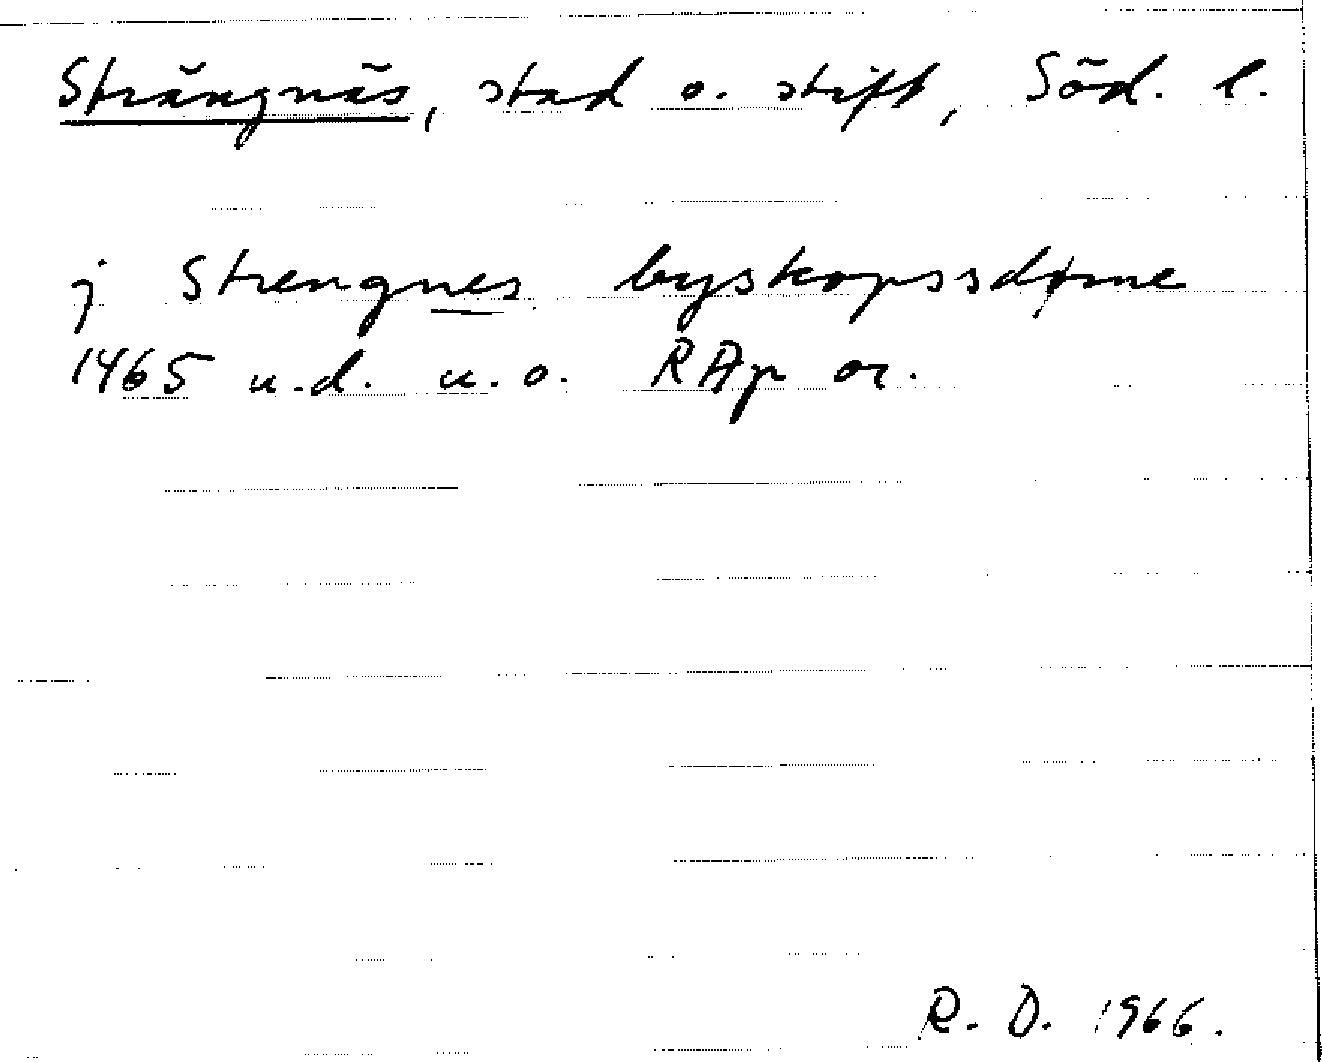 Strängnäs, stad o. stift, Söd. l.
j Strengnes byskopssdøme
1465 u.d. u.o. RAp or.
R. D. 1966.